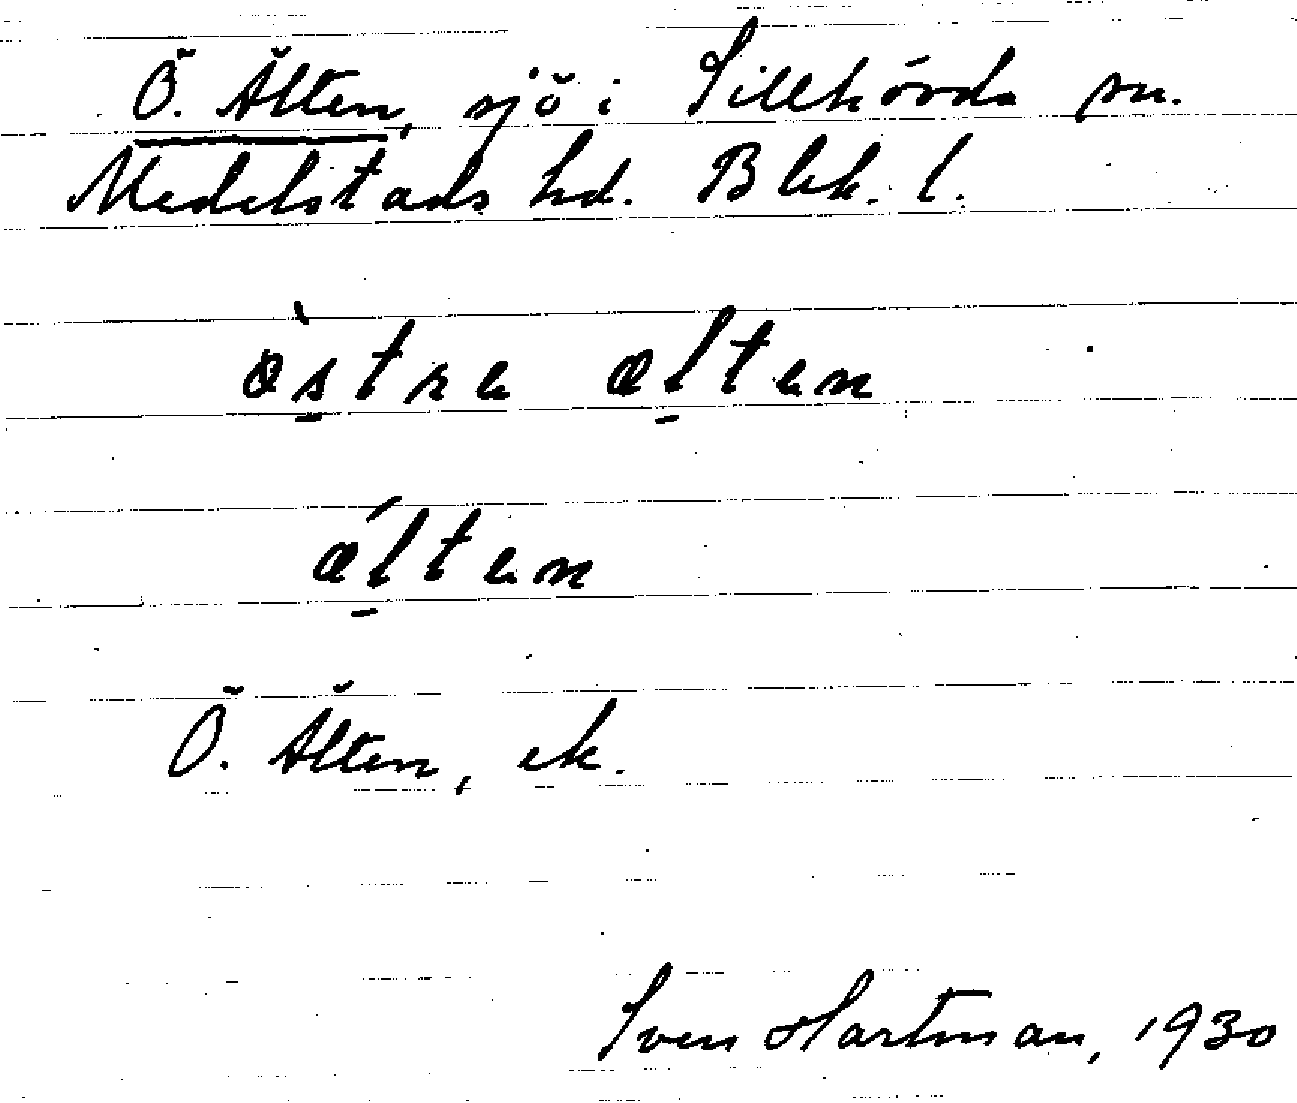 Ö. Älten, sjö i Sillhövda sn.
Medelstads hd. Blek. l.
östre ælten
ælten
Ö. Älten, ek.
Sven Hartman, 1930